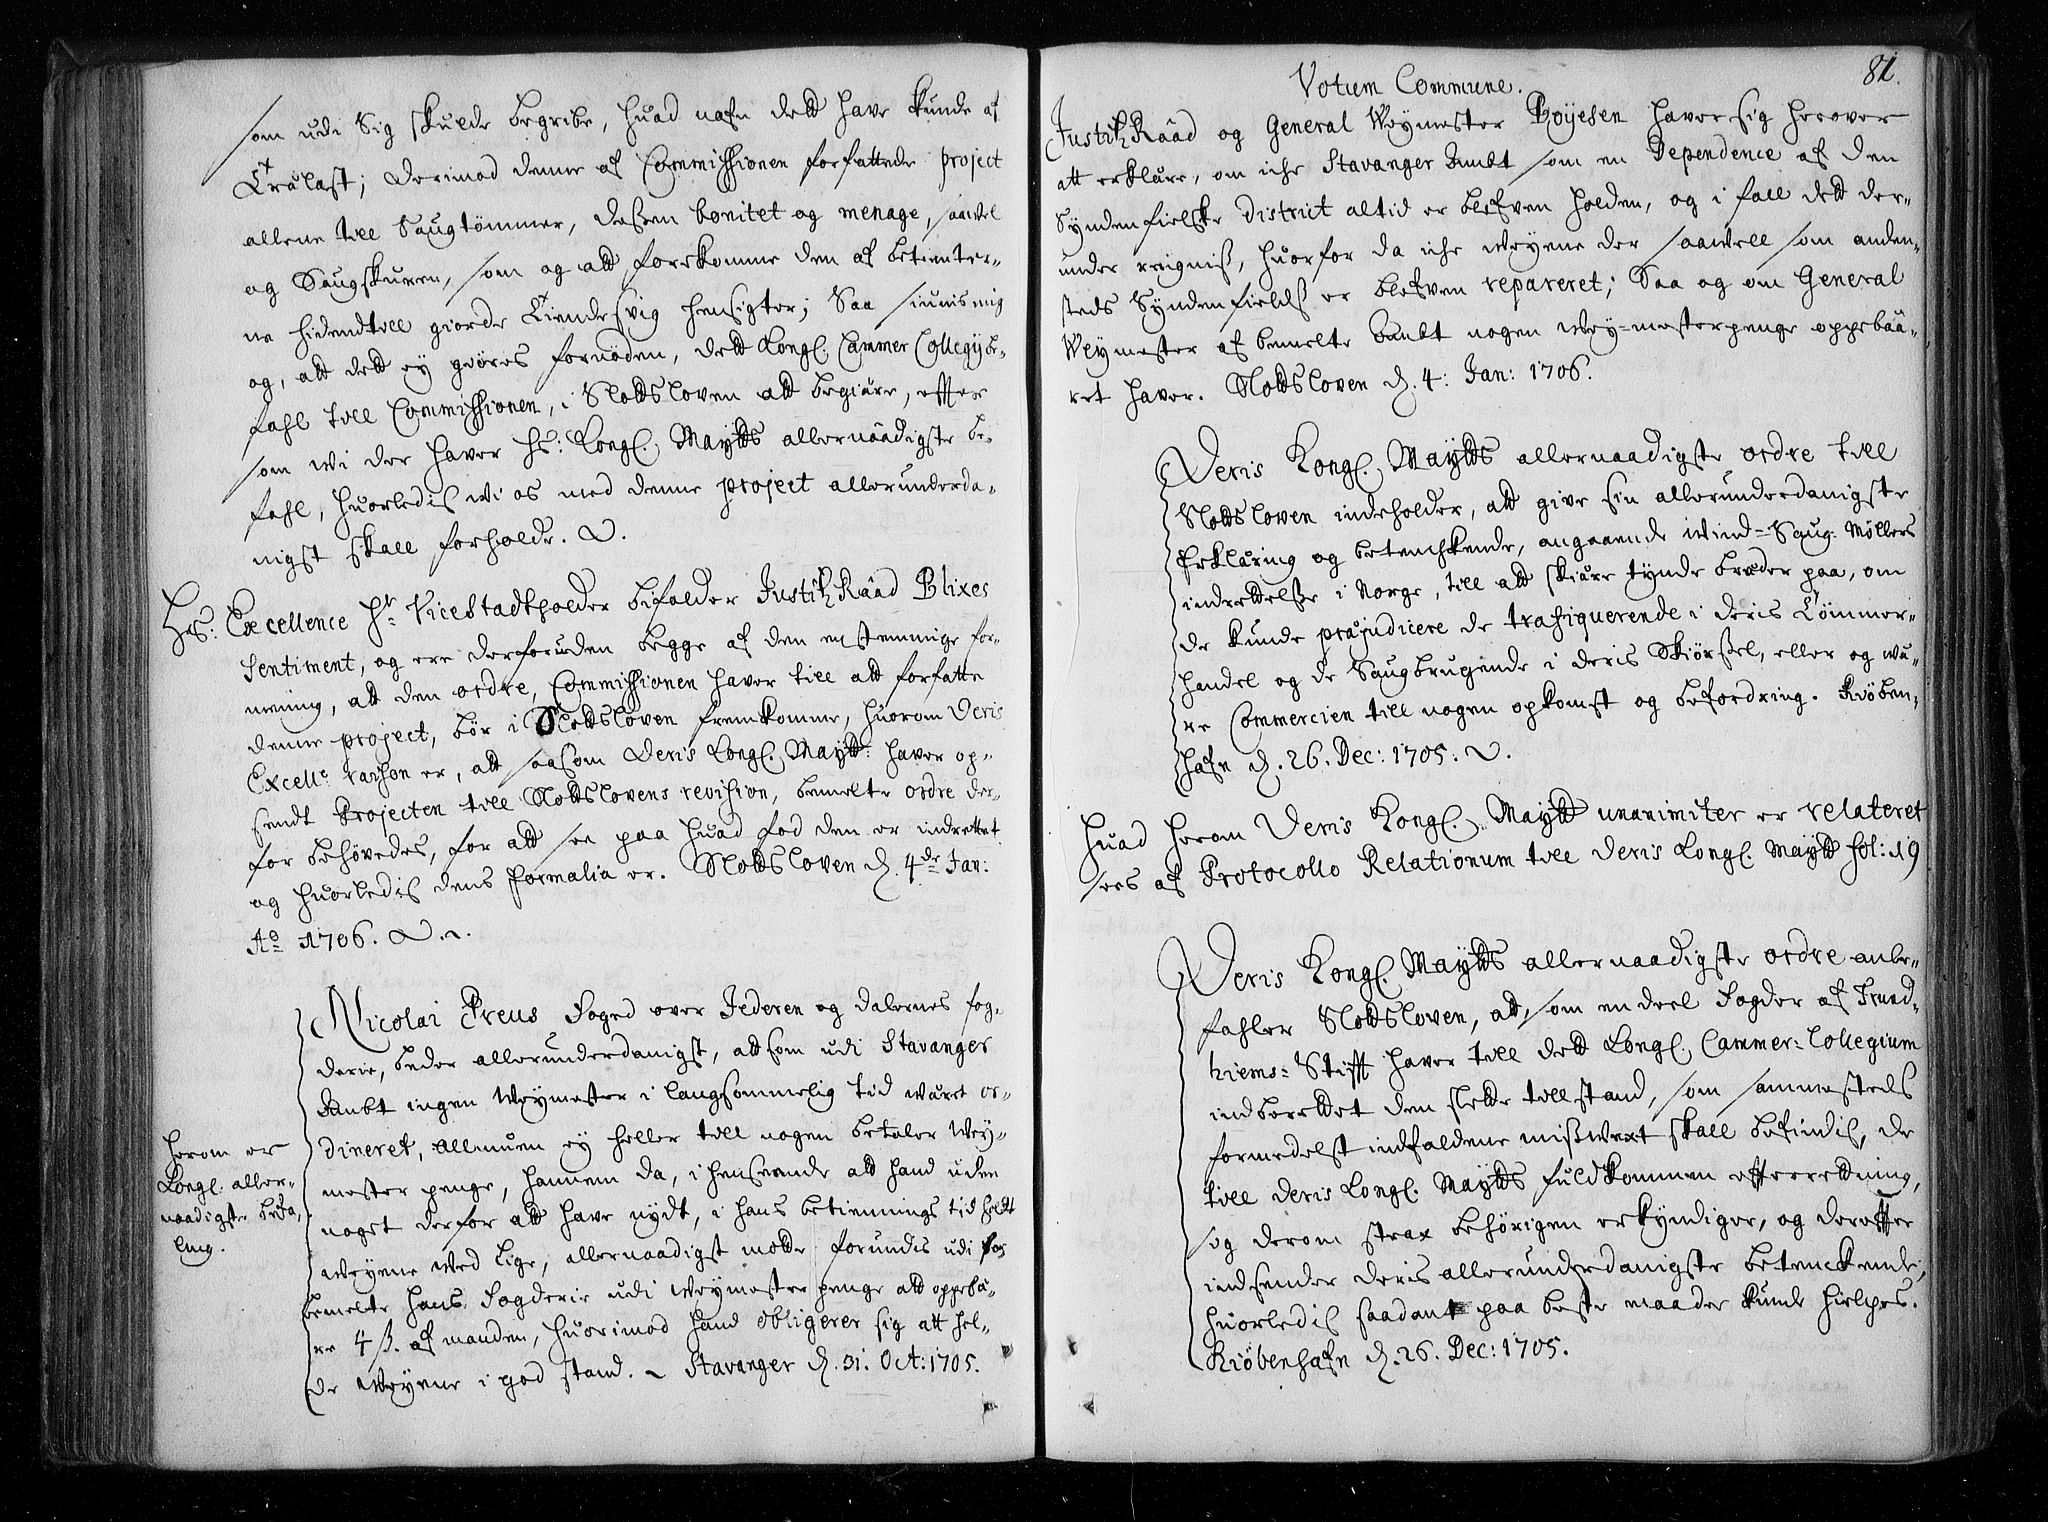 som udi Sig skulde begribe, huad nafn dett have kunde af
Trælast; derimod denne af Commissionen forfattede project
allene till Saugtømmer, deßen bonitet og menage, saavel
og Saugskuren, som og att forekomme den af betienter-
ne hidendtill giorde Tiendesvig hensigter; Saa siunis mig
og, att dett ey giøres fornöden, dett Kongl. Cammer Collegij be-
fahl till Commissionen, i Slottsloven att begiære, efter
som wi der haver Hs: Kongl. Maytts allernaadigste be-
fahl, huorledis wi os med denne project allerunderda-
nigst skall forholde.
Hs: Excellence Hr. Vicestadtholder bifalder Justitz Raad Blixes
Sentiment, og ere derforuden begge af den eenstemmige for-
mening, att den ordre, Commissionen haver till att forfatte
denne project, bør i Slottsloven fremkomme, huorom Deris
Excell: raison er, att saasom Deris Kongl. Maytt: haver op-
sendt Projecten till Slottslovens revision, bemelte ordre der-
for behøvedes, for att see paa huad fod den er indrettet
og huorledis dens formalia er. Slottsloven d. 4de Jan:
Ao 1706.
Nicolai Preus Foged over Jederen og Dalernes fog-
derie, beder allerunderdanigst, att som udi Stavanger
Ambt ingen Weymester i langsommelig tid været or-
dineret, allmuen ey heller till nogen betaler Wey-
mester penge, hannem da, i henseende att hand uden
noget derfor att have nydt, i hans betiennings tid holdt
weyene ved lige, allernaadigst motte forundis udi for
bemelte hans Fogderie udi weymester penge att oppebæ-
re 4 ß. af manden, huorimod hand obligerer sig att hol-
de Weyene i god stand. Stavanger d. 31. Oct: 1705.
herom er
Kongl. aller-
naadigste befa-
ling.
81.
Votum Commune.
Justitz Raad og General Weymester Boyesen haver sig herover
att erklære, om iche Stavanger Ambt som en Dependence af den
Syndenfielske District altid er blefven holden, og i fall dett der-
under reigniß, huorfor da iche weyene der saavell som anden-
steds Syndenfields er blefven repareret; Saa og om General
Weymester af bemelte Ambt nogen wey-mesterpenge oppebaa-
ret haver. Slottsloven d. 4: Jan: 1706.
Deris Kongl. Maytts allernaadigste ordre till
Slottsloven indeholder, att give sin allerunderdanigste
Erklæring og betenchende, angaaende wind-Saug-Møllers
indrettelse i Norge, till att skiære tynde bræder paa, om
de kunde præjudicere de trafiquerende i deris Tömmer-
handel og de Saugbrugende i deris Skiørßel, eller og wæ-
re Commercien till nogen opkomst og befordring. Kiöben-
hafn d. 26. Dec: 1705.
Huad herom Deris Kongl. Maytt unanimiter er relateret
sees af Protocollo Relationum till Deris Kongl. Maytt fol: 19
Deris Kongl. Maytts allernaadigste ordre anbe-
fahler Slottsloven, att, som en deel Fogder af Trund-
hiems-Stifft haver till dett Kongl. Cammer-Collegium
indberettet den slette tillstand, som sammesteds
formedelst indfaldene mißwext skall befindis, de
till Deris Kongl. Maytts fuldkommen efterretning,
sig derom strax behörigen erkyndiger, og derefter
indsender deris allerunderdanigste betenckende,
huorledis saadant paa beste maader kunde hielpes.
Kiöbenhafn d. 26. Dec: 1705.